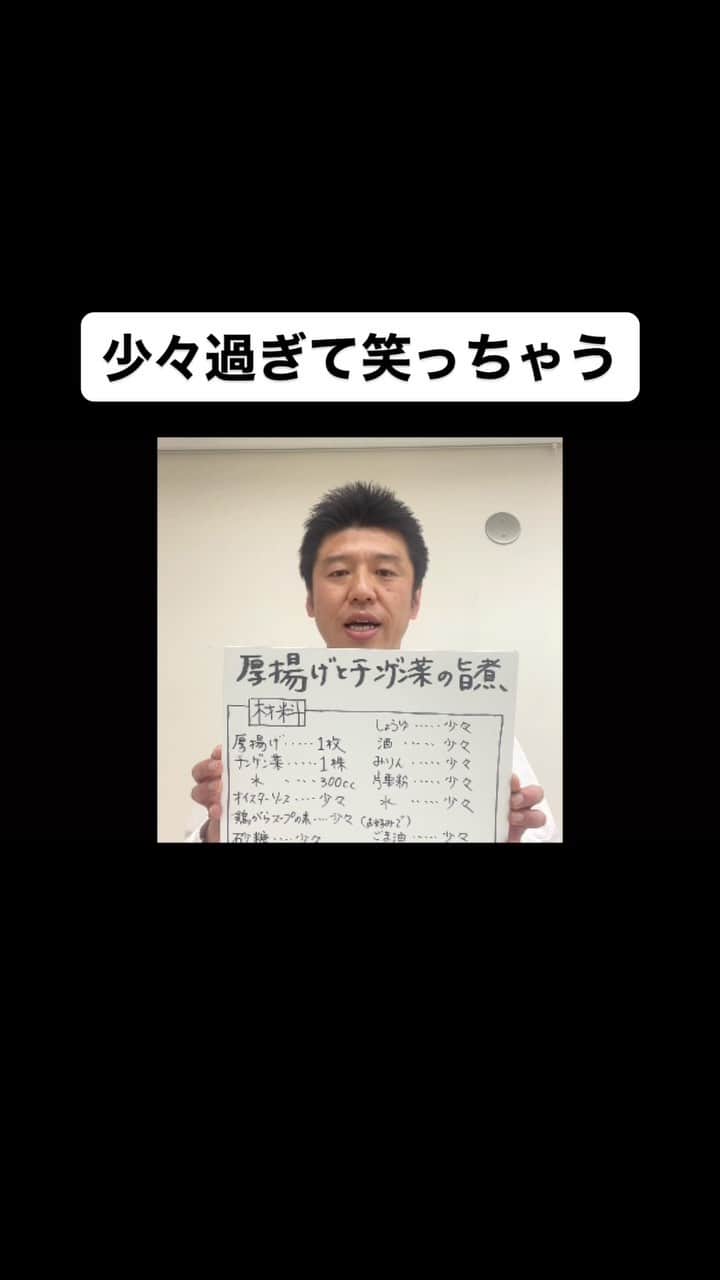 少々過ぎて笑っちゃう
厚揚げとチンゲン菜の旨煮、
材料
厚揚げ・・・・・1枚
チンゲン菜・・・・・1株
水 ・・・・・300cc
オイスターソース・・・・少々
鶏がらスープの素・・・少々
砂糖・・・・少々
しょうゆ・・・・・少々
酒 ・・・・・少々
みりん・・・・・少々
片栗粉・・・・・少々
水 ・・・・・少々
(お好みで)
ごま油・・・・・少々